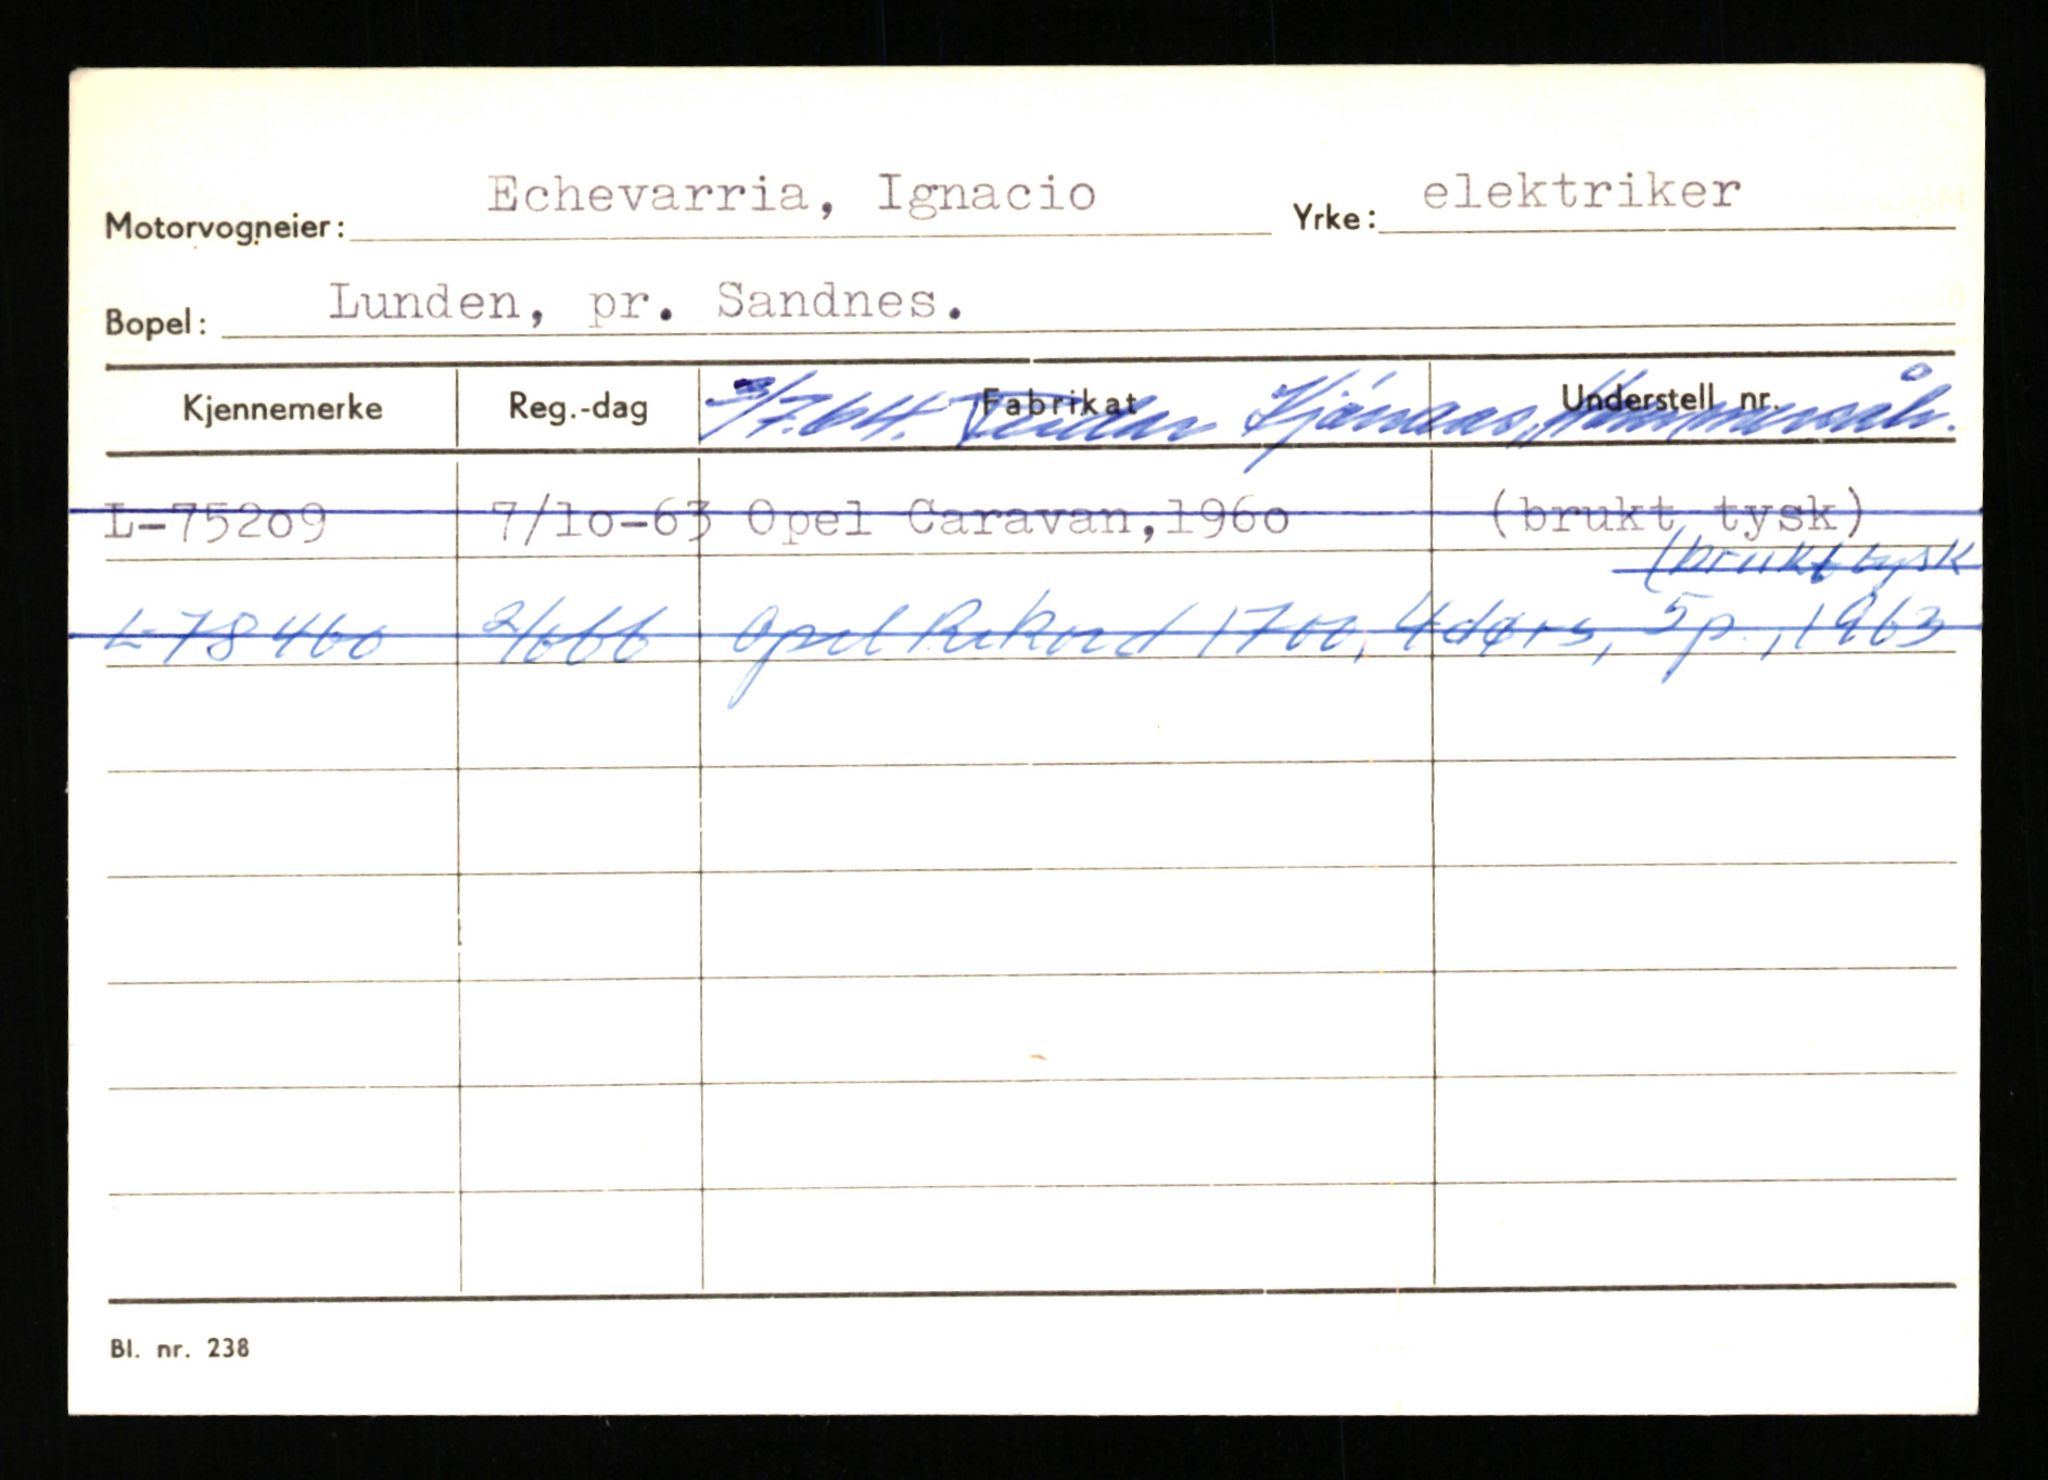 Motorvogneier: Echevarria, Ignacio Yrke: elektriker
Bopel: Lunden, pr. Sandnes.
Kjennemerke Reg.-dag Fabrikat Understell nr.
3/7.64.
L-75209 7/10-63 Opel Caravan, 1960 (brukt tysk)
(brukt tysk
L-78460 2/666 Opel Rekord 1700, 4dørs, 5p., 1963
Bl. nr. 238